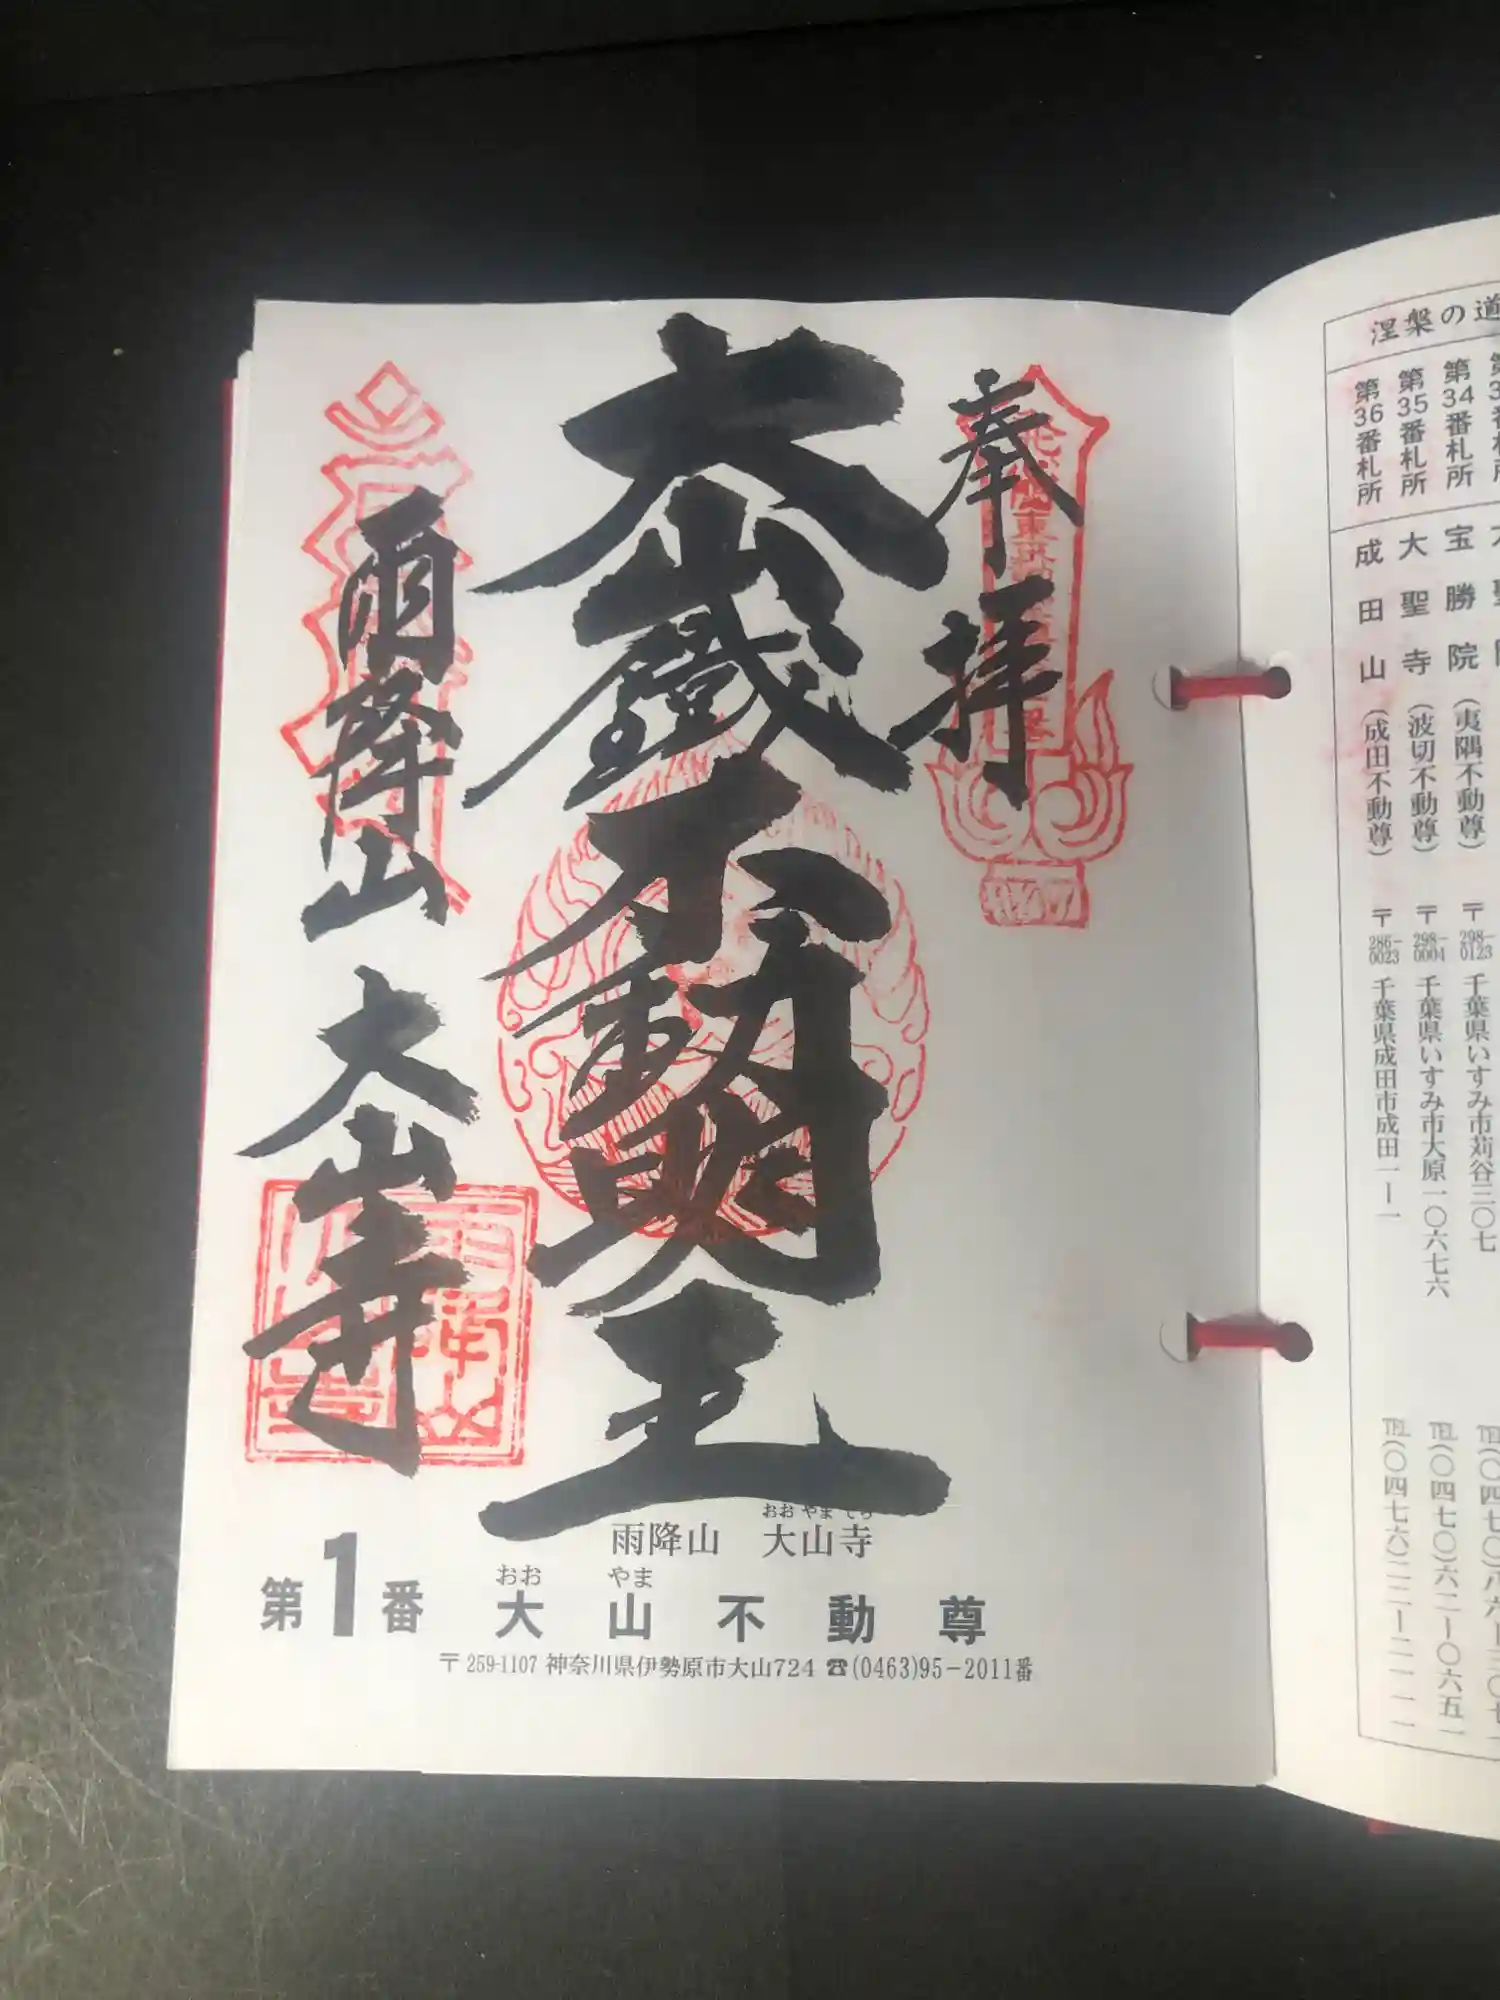 奉拝
大山鐵不動明王
雨降山 大山寺
おおやまてら
雨降山 大山寺
おお やま
第1番 大山不動尊
〒259-1107 神奈川県伊勢原市大山724 ☎(0463)95-2011番
涅槃の道
第34番札所 宝勝院（夷隅不動尊）〒298-0123 千葉県いすみ市苅谷三〇七
第35番札所 大聖寺（波切不動尊）〒298-0004 千葉県いすみ市大原一〇六七六 TEL(〇四七〇)六二-〇六五一
第36番札所 成田山（成田不動尊）〒286-0023 千葉県成田市成田一-一 TEL(〇四七六)二二-二一一一